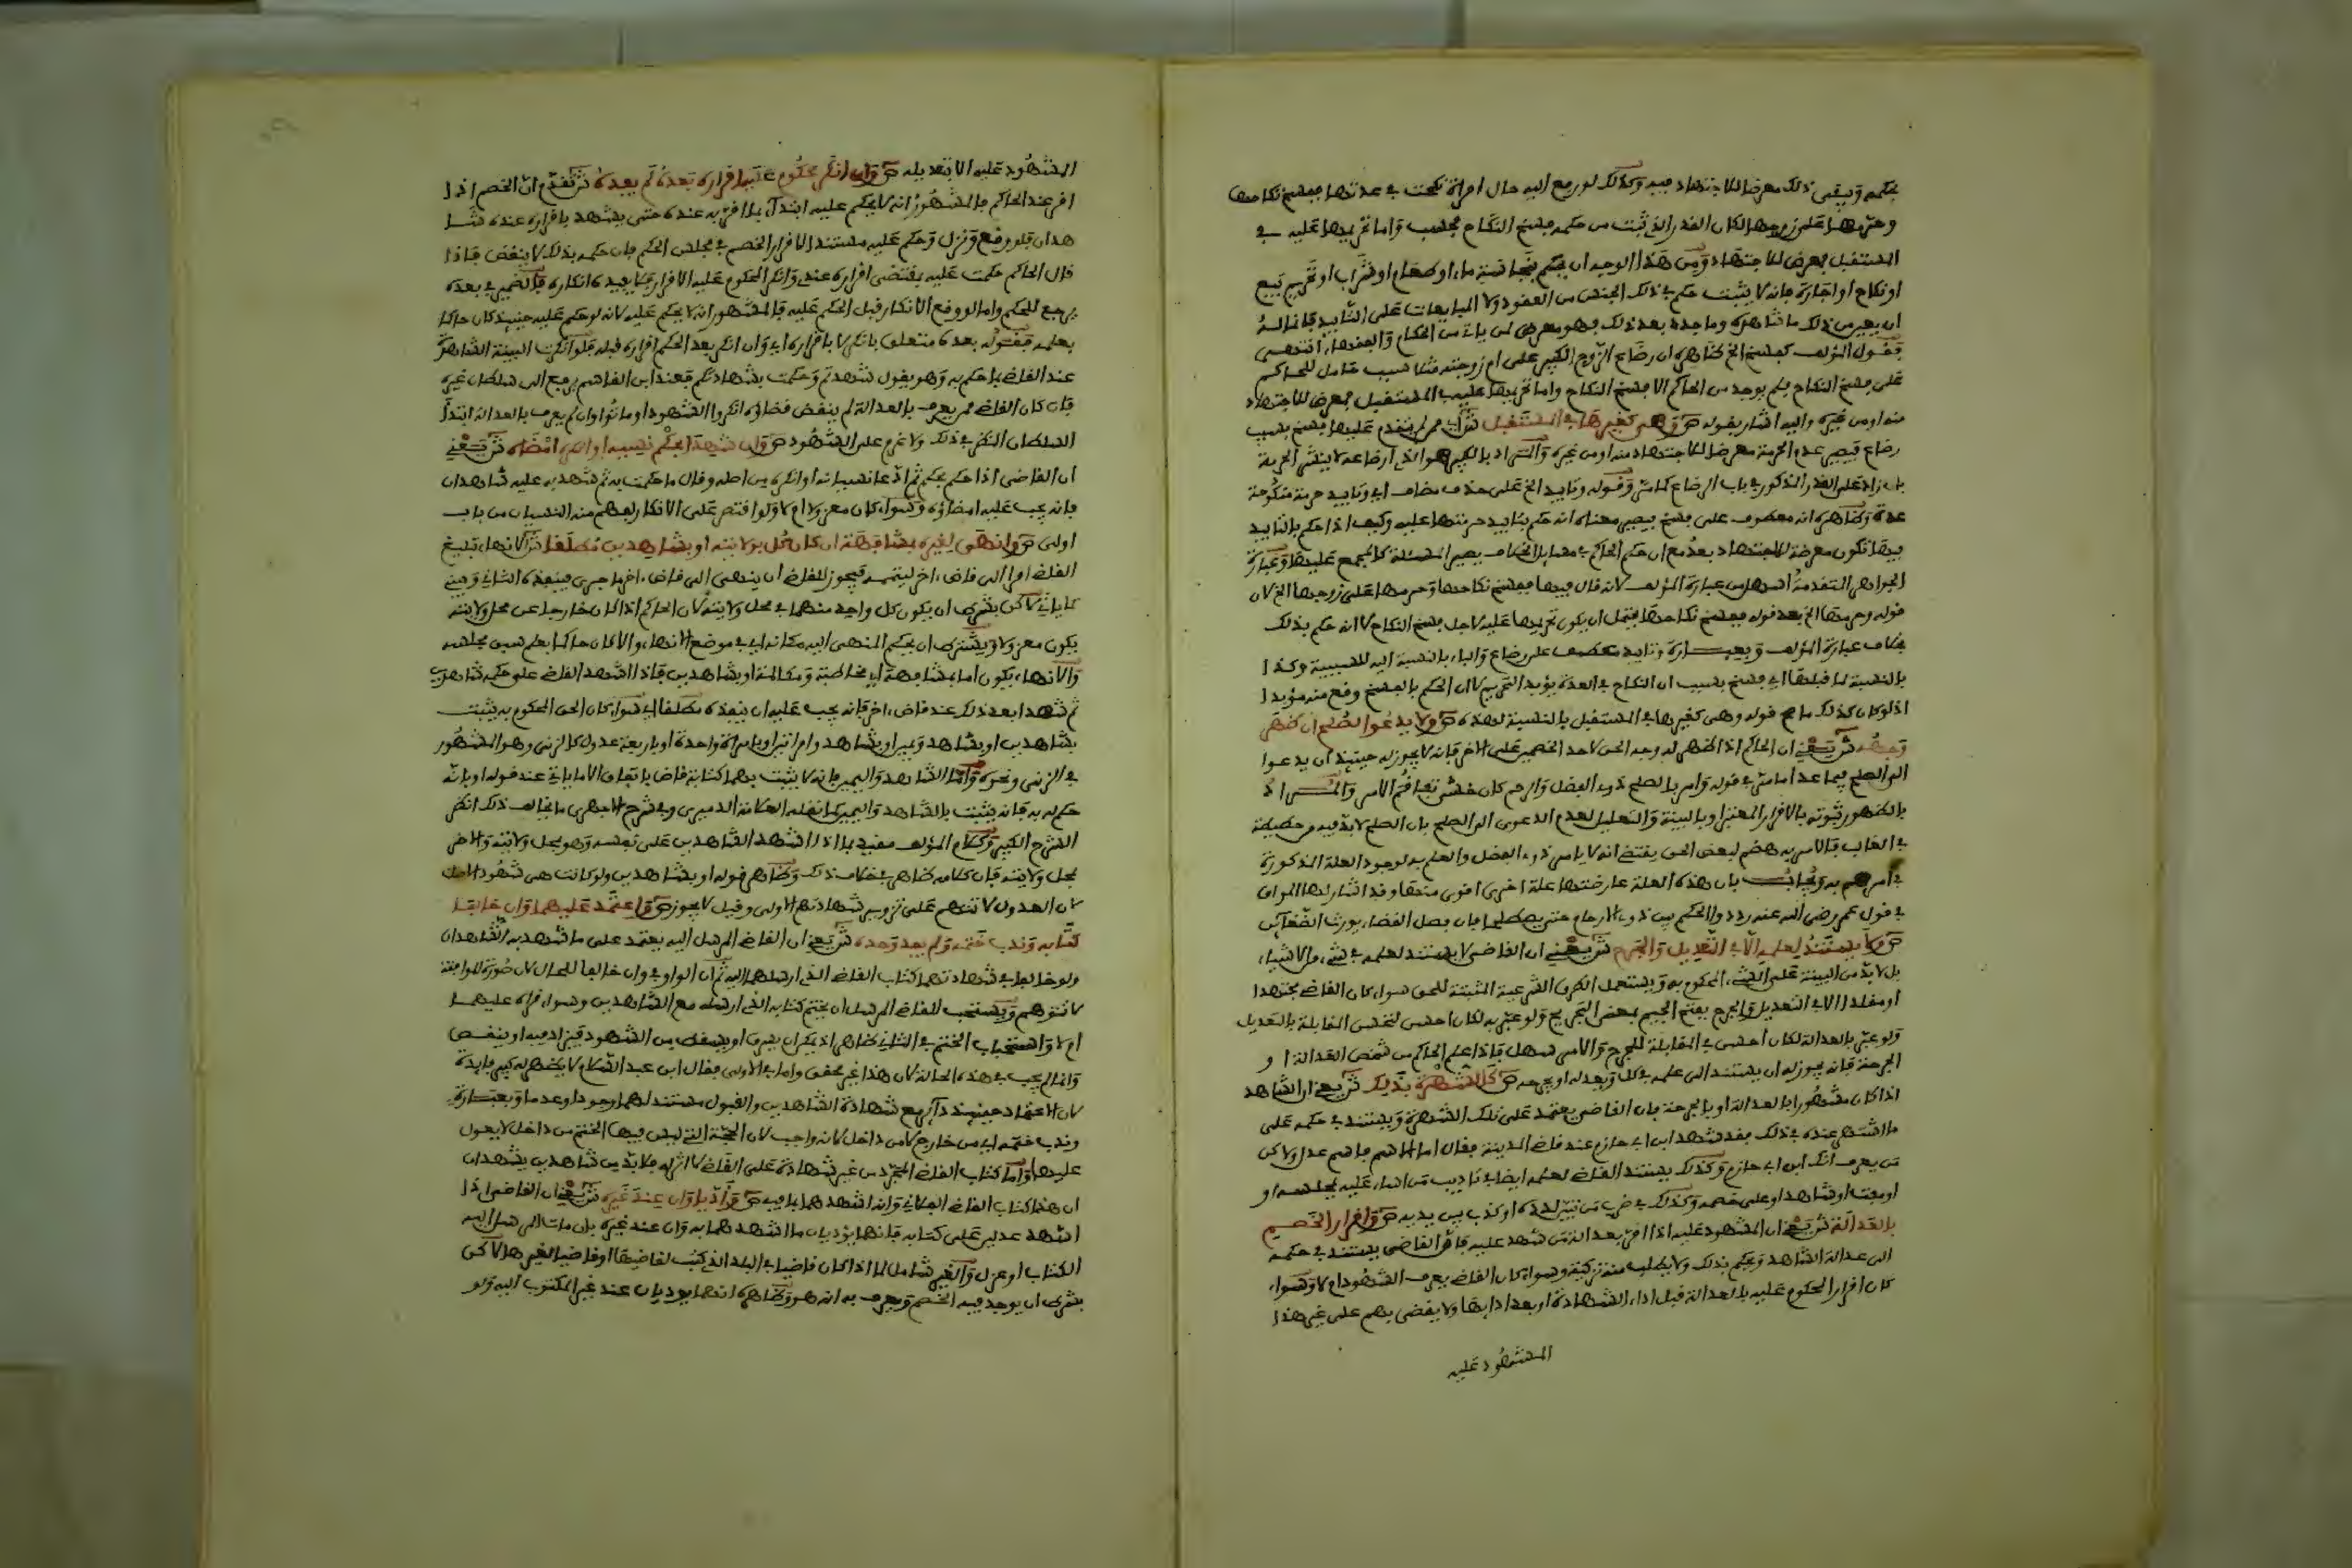 بحكمه ويبقى ذلك معرضا للاجتهاد فيه وكذلك لو رفع اليه حال امراة نكحت في عدتها ففسخ نكاحها
وحرمها على زوجها لكان القدر الذي ثبت من حكمه فسخ النكاح فحسب واما تحريمها عليه في
المستقبل فمعرض للاجتهاد ومن هذا الوجه ان يحكم بنجاسة ماء او طعام او شراب او تحريم بيع
او نكاح او اجارة فانه لا يثبت حكم في ذلك الجنس من العقود ولا المبايعات على التابيد فانما له
ان يغير من ذلك ما شاهده وما جد بعد ذلك فهو معرض لمن ياتي من الحكام والفقهاء انتهى
فقول المؤلف كفسخ الخ كظاهره ان رضاع الزوج الكبير على ام زوجته مثلا سبب حامل للحاكم
على فسخ النكاح فلم يوجد من الحاكم الا فسخ النكاح واما تحريمها عليه في المستقبل فمعرض للاجتهاد
منه او من غيره واليه اشار بقوله ص وهي كغيرها في المستقبل ش اي ممن لم يتقدم عليها فسخ بسبب
رضاع فيصير عدم الحرمة معرضا للاجتهاد منه او من غيره والمراد بالكبير هو الذي ارضاعه لا ينشر الحرمة
بان زاد على القدر المذكور في باب الرضاع كما مر وقوله وتابيد الخ على حذف مضاف اي وتابيد حرمة منكوحة
عدة وظاهره انه معطوف على فسخ فيصير معناه انه حكم بتابيد حرمتها عليه وكيف اذا حكم بالتابيد
فيها تكون معرضة للاجتهاد بعد مع ان حكم الحاكم في مسايل الخلاف يصير المسئلة كالمجمع عليها وعبارة
الجواهر المتقدمة اسهل من عبارة المؤلف لانه قال فيها ففسخ نكاحها وحرمها على زوجها الخ لان
قوله وحرمها الخ بعد قوله ففسخ نكاحها يحتمل ان يكون تحريمها عليه لاجل فسخ النكاح لا انه حكم بذلك
بخلاف عبارة المؤلف وبعبارة وتابيد معطوف على رضاع والباء بالنسبة اليه للسببية وكذا
بالنسبة لما قبلها اي فسخ بسبب ان النكاح في العدة يؤبد التحريم لا ان الحكم بالفسخ وقع منه مؤبدا
اذ لو كان كذلك ما صح قوله وهي كغيرها في المستقبل بالنسبة لهذه ص ولا يدعو لصلح ان ظهر
وجهه ش يعني ان الحاكم اذا ظهر له وجه الحق لاحد الخصمين على الاخر فانه لا يجوز له حينئذ ان يدعوا
الى الصلح فيما عدا ما مر في قوله وامر بالصلح ذوي الفضل والرحم كان خشي تفاقم الامر والمراد
بالظهور ثبوته بالاقرار المعتبر او بالبينة والتعليل لعدم الدعوى الى الصلح بان الصلح لا بد فيه من حطيطة
في الغالب فالامر به هضم لبعض الحق يقتضي انه لا يامر ذوي الفضل والعلم به لوجود العلة المذكورة
في امرهم به ويجاب بان هذه العلة عارضتها علة اخرى اقوى منها وقد اشار لها المواق
في قول عمر رضي الله عنه رددوا الحكم بين ذوي الارحام حتى يصطلحا فان فصل القضاء يورث الضغائن
ص ولا يستند لعلمه الا في التعديل والجرح ش يعني ان القاضي لا يستند لعلمه في شيء من الاشياء
بل لا بد من البينة على الشيء المحكوم به ويستعمل الطرق الشرعية المثبتة للحق سواء كان القاضي مجتهدا
او مقلدا الا في التعديل والجرح بفتح الجيم بمعنى التجريح ولو عبر به لكان احسن لتحسن المقابلة بالتعديل
ولو عبر بالعدالة لكان احسن في المقابلة للجرح والامر سهل فاذا علم الحاكم من شخص العدالة او
الجرحة فانه يجوز له ان يستند الى علمه في كل ويعدله او يجرحه ص كالشهرة بذلك ش يعني ان الشاهد
اذا كان مشهورا بالعدالة او بالجرحة فان القاضي يعتمد على تلك الشهرة ويستند في حكمه على
ما اشتهر عنده في ذلك فقد شهد ابن ابي حازم عند قاضي المدينة فقال اما الاسم فاسم عدل ولاكن
من يعرف انك ابن ابي حازم وكذلك يستند القاضي لعلمه ايضا في تاديب من اساء عليه بمجلسه او
او مفت او شاهد او على خصمه وكذلك في ضرب من تبين لدده او كذب بين يديه ص واقرار الخصم
بالعدالة ش يعني ان المشهود عليه اذا اقر بعدالة من شهد عليه فان القاضي يستند في حكمه
الى عدالة الشاهد ويحكم بذلك ولا يطلب منه تزكية وسواء كان القاضي يعرف الشهود ام لا وسواء
كان اقرار المحكوم عليه بالعدالة قبل اداء الشهادة او بعد ادايها ولا يقضى بهم على غير هذا
المشهود عليه
المشهود عليه الا بتعديله ص وان انكر محكوم عليه اقراره بعده لم يفده ش تقدم ان الخصم اذا
اقر عند الحاكم فالمشهور انه لا يحكم عليه ابتداء بما اقر به عنده حتى يشهد باقراره عنده شا
هدان فلو وقع ونزل وحكم عليه مستندا لاقرار الخصم في مجلس الحكم فان حكمه بذلك لا ينقض فاذا
قال الحاكم حكمت عليه بمقتضى اقراره عندي وانكر المحكوم عليه الاقرار فلا يفيده انكاره فالضمير في بعده
يرجع للحكم واما لو وقع الانكار قبل الحكم عليه فالمشهور انه لا يحكم عليه لانه لو حكم عليه حينئذ كان حاكما
بعلمه فقوله بعده متعلق بانكر لا باقراره اي وان انكر بعد الحكم اقراره قبله فلو انكرت البينة الشاهدة
عند القاضي بما حكم به وهو يقول شهدتم وحكمت بشهادتكم فعند ابن القاسم يرفع الى سلطان غيره
فان كان القاضي ممن يعرف بالعدالة لم ينقض قضاؤه انكروا الشهود او ماتوا وان لم يعرف بالعدالة ابتدأ
السلطان النظر في ذلك ولا غرم على الشهود ص وان شهدا بحكم نسيه او انكره امضاه ش يعني
ان القاضي اذا حكم بحكم ثم ادعا نسيانه او انكره من اصله وقال ما حكمت به ثم شهد به عليه شاهدان
فانه يجب عليه امضاؤه وسواء كان معزولا ام لا ولو اقتصر على الانكار لفهم منه النسيان من باب
اولى ص وانهى لغيره بمشافهة ان كان كل بولايته او بشاهدين مطلقا ش الانهاء تبليغ
القاضي امرا الى قاض اخر ليتمه فيجوز للقاضي ان ينهى الى قاض اخر ما جرى فينفذه الثاني وحين
كما ياتي لاكن بشرط ان يكون كل واحد منهما في محل ولايته لان الحاكم اذا كان خارجا عن محل ولايته
يكون معزولا ويشترط ان يحكم المنهى اليه مكانه اي في موضع الانهاء والا كان حاكما بعلم سبق مجلسه
والانهاء يكون اما بمشافهة اي مخاطبة ومكالمة او بشاهدين فاذا اشهد القاضي على حكمه شاهدين
ثم شهدا بعد ذلك عند قاض اخر فانه يجب عليه ان ينفذه مطلقا اي سواء كان الحق المحكوم به يثبت
بشاهدين او بشاهد ويمين او بشاهد وامراتين او بامراة واحدة او باربعة عدول كالزنى وهو المشهور
في الزنى ونحوه واما الشاهد واليمين فانه لا يثبت بهما كتابة قاض باتفاق الا ما ياتي عند قوله او بانه
حكم له به فانه يثبت بالشاهد واليمين كما نقله العلامة الدميري وفي شرح الاجهري ما يخالف ذلك انظر
الشرح الكبير وكلام المؤلف مقيد بما اذا اشهد الشاهدين على نفسه وهو بمحل ولايته والاخر
بمحل ولايته فان كلامه ظاهر بخلاف ذلك وظاهر قوله او بشاهدين ولو كانت هي شهود الاصل
لان العدول لا تتهم على تزوير شهادتهم الاولى وقيل لا يجوز ص واعتمد عليهما وان خالفا
كتابه وندب ختمه ولم يفد وحده ش يعني ان القاضي المرسل اليه يعتمد على ما شهد به الشاهدان
ولو خالفا في شهادتهما كتاب القاضي الذي ارسلهما اليه ثم ان الواو في وان خالفا للحال لان صورة الموافقة
لا تتوهم ويستحب للقاضي المرسل ان يختم كتابه الذي ارسله مع الشاهدين وسواء قراه عليهما
ام لا واستحباب الختم في الثاني ظاهر اذ يمكن ان يسرق او يسقط من الشهود فيزاد فيه او ينقص
وانما لم يجب في هذه الحالة لان هذا غير محقق واما في الاولى فقال ابن عبد السلام لا يظهر له كبير فايدة
لان الاعتماد حينئذ انما يقع شهادة الشاهدين والقبول مستند لهما وجودا وعدما وبعبارة
وندب ختمه اي من خارج لا من داخل لانه واجب لان الحجة التي ليس فيها الختم من داخل لا يعول
عليها واما كتاب القاضي المجرد من غير شهادة على القاضي لا اثر له فلا بد من شاهدين يشهدان
ان هذا كتاب القاضي الفلاني وانه اشهدهما بما فيه ص واديا وان عند غيره ش يعني ان القاضي اذا
اشهد عدلين على كتابه فانهما يؤديان ما اشهدهما به وان عند غيره بان مات المرسل اليه
الكتاب او عزل والغير شامل لما اذا كان قاضيا في البلد الذي كتب لقاضيها او قاضيا لغيرها لاكن
بشرط ان يوجد فيه الخصم ويعرف به انه هو وظاهره انهما يوديان عند غير المكتوب اليه ولو